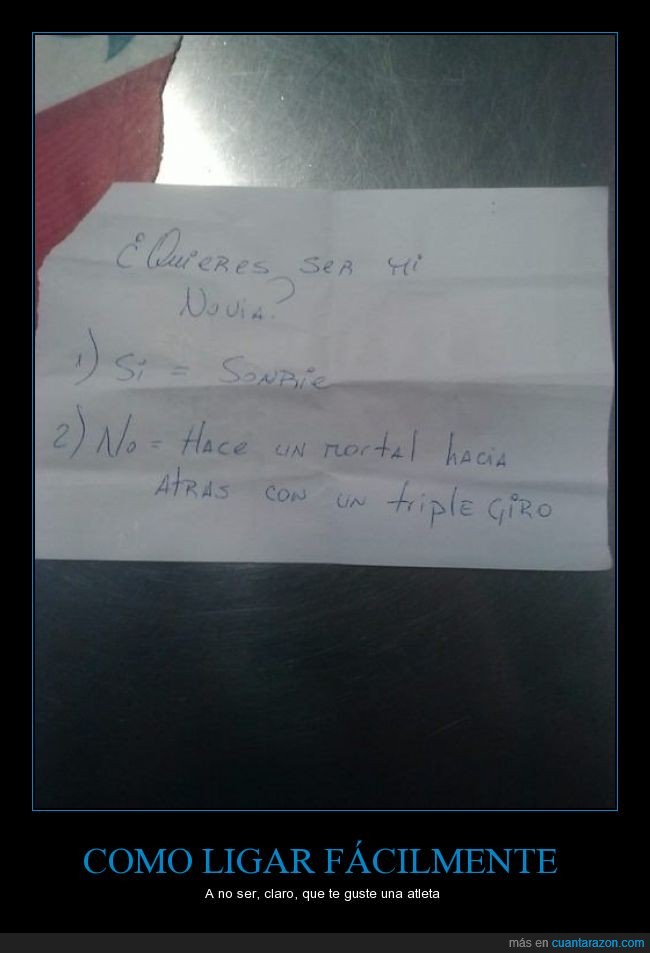 ¿Quieres ser mi
Novia?
1) Si = Sonrie
2) No = Hace un mortal hacia
atras con un triple giro
COMO LIGAR FÁCILMENTE
A no ser, claro, que te guste una atleta
más en cuantarazon.com